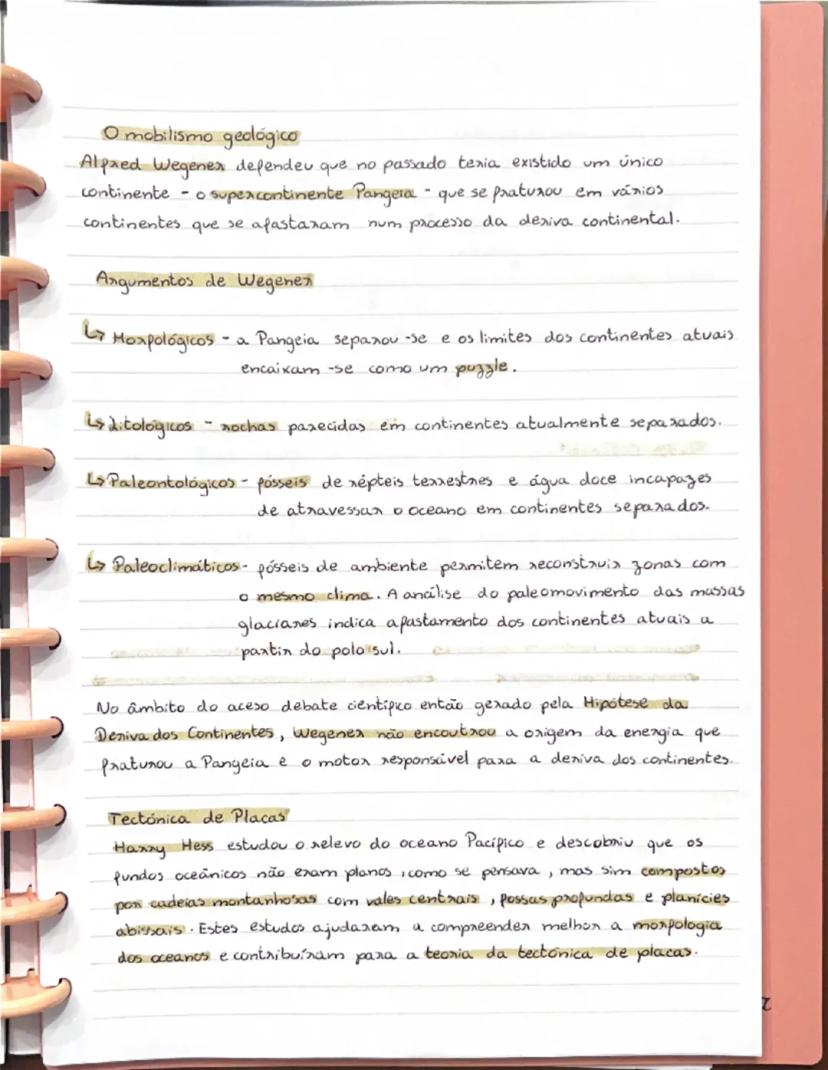 O mobilismo geológico
Alfred Wegener defendeu que no passado teria existido um único
continente - o supercontinente Pangeia - que se fraturou em vários
continentes que se afastaram num processo da deriva continental.
Argumentos de Wegener
↳ Morfológicos - a Pangeia separou-se e os limites dos continentes atuais
encaixam-se como um puzzle.
↳ Litológicos - rochas parecidas em continentes atualmente separados.
↳ Paleontológicos - fósseis de répteis terrestres e água doce incapazes
de atravessar o oceano em continentes separados.
↳ Paleoclimáticos - fósseis de ambiente permitem reconstruir zonas com
o mesmo clima. A análise do paleomovimento das massas
glaciares indica afastamento dos continentes atuais a
partir do polo sul.
No âmbito do aceso debate científico então gerado pela Hipótese da
Deriva dos Continentes, Wegener não encoutrou a origem da energia que
fraturou a Pangeia e o motor responsável para a deriva dos continentes.
Tectónica de Placas
Harry Hess estudou o relevo do oceano Pacífico e descobriu que os
fundos oceânicos não eram planos, como se pensava, mas sim compostos
por cadeias montanhosas com vales centrais, fossas profundas e planícies
abissais. Estes estudos ajudaram a compreender melhor a morfologia
dos oceanos e contribuíram para a teoria da tectónica de placas.